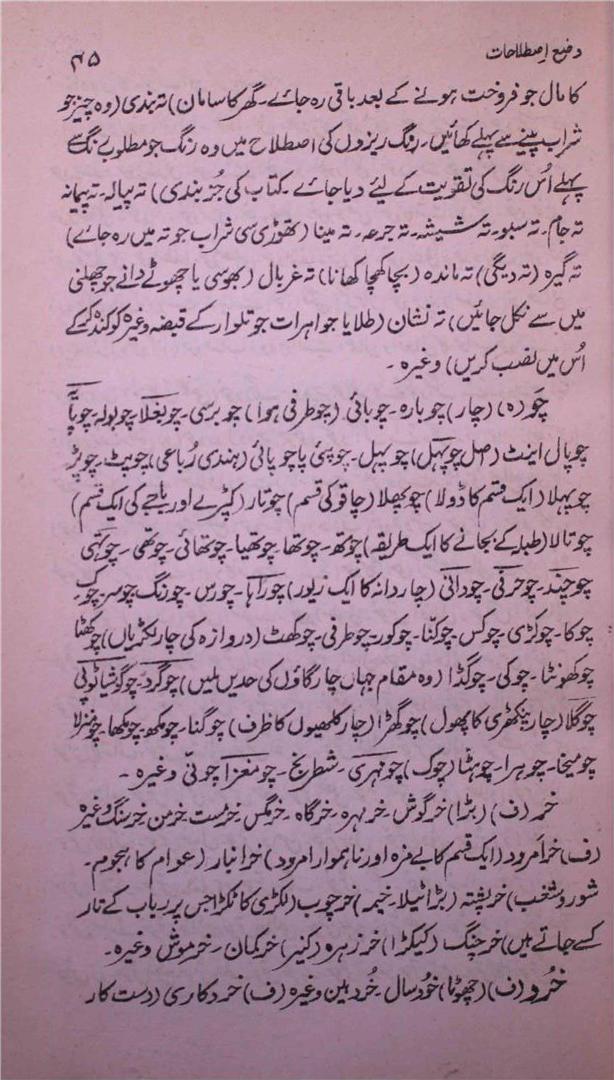 وضع اصطلاحات
۴۵
کا مال جو فروخت ہونے کے بعد باقی رہ جائے۔ گھر کا سامان) تہ بندی (وہ چیز جو
شراب پینے سے پہلے کھائیں۔ رنگ ریزوں کی اصطلاح میں وہ رنگ جو مطلوبہ رنگ سے
پہلے اُس رنگ کی تقویت کے لیئے دیا جائے۔ کتاب کی جُز بندی) تہ پیالہ۔ تہ پیمانہ
تہ جام۔ تہ سبو۔ تہ شیشہ۔ تہ جرعہ۔ تہ مینا (تھوڑی سی شراب جو تہ میں رہ جائے)
تہ گیرہ (تہ دیگی) تہ ماندہ (بچا کھچا کھانا) تہ غربال (بھوسی یا چھوٹے دانے جو چھلنی
میں سے نکل جائیں) تہ نشان (طلا یا جواہرات جو تلوار کے قبضہ وغیرہ کو کندہ کر کے
اُس میں نصب کریں) وغیرہ۔
چَو (ہ) (چار) چوبارہ۔ چوبائی (چوطرفی ہوا) چوبرسی۔ چوبغلا چوبولہ چوپایہ
چوپال اینٹ (اصل چوپہل) چوپہل۔ چوپئی یا چوپائی (ہندی رُباعی) چوپٹ۔ چوپڑ
چوپہلا (ایک قسم کا ڈولا) چوپھلا (چاقو کی قسم) چوتار (کپڑے اور باجے کی ایک قسم)
چوتالا (طبلہ کے بجانے کا ایک طریقہ) چوتھ۔ چوتھا۔ چوتھیا۔ چوتھائی۔ چوتھی۔ چوتہی
چوچند۔ چوحرفی۔ چودانی (چار دانہ کا ایک زیور) چوراہا۔ چورس۔ چورنگ چوسر چوک
چوکا۔ چوکڑی۔ چوکس۔ چوکنّا۔ چوکور۔ چوطرفی۔ چوکھٹ (دروازہ کی چار لکڑیاں) چوکھٹا
چوکھونٹا۔ چوکی۔ چوگڈا (وہ مقام جہاں چار گاؤں کی حدیں ملیں) چوگرد۔ چوگوشیا ٹوپی
چوگلا (چار پنکھڑی کا پھول) چوگھڑا (چار کلھیوں کا ظرف) چوگنا۔ چومکھ۔ چومکھا۔ چومنزلا
چومیخا۔ چوہرا۔ چوہٹا (چوک) چومہری۔ شطرنج۔ چومغزا چونّی وغیرہ۔
خر (ف) (بڑا) خرگوش۔ خر مہرہ۔ خرگاہ۔ خرمگس۔ خرمست۔ خرمن۔ خرسنگ وغیرہ
(ف) خرامرود (ایک قسم کا بے مزہ اور ناہموار امرود) خرانبار (عوام کا ہجوم۔
شور و شغب) خرپشتہ (بڑا ٹیلا۔ خیمہ) خرچوب (لکڑی کا ٹکڑا جس پر رباب کے تار
کسے جاتے ہیں) خرچنگ (کیکڑا) خرزہرہ (کنیر) خرکمان۔ خرموش وغیرہ۔
خُرد (ف) (چھوٹا) خُردسال۔ خُردبین وغیرہ (ف) خردکاری (دست کار